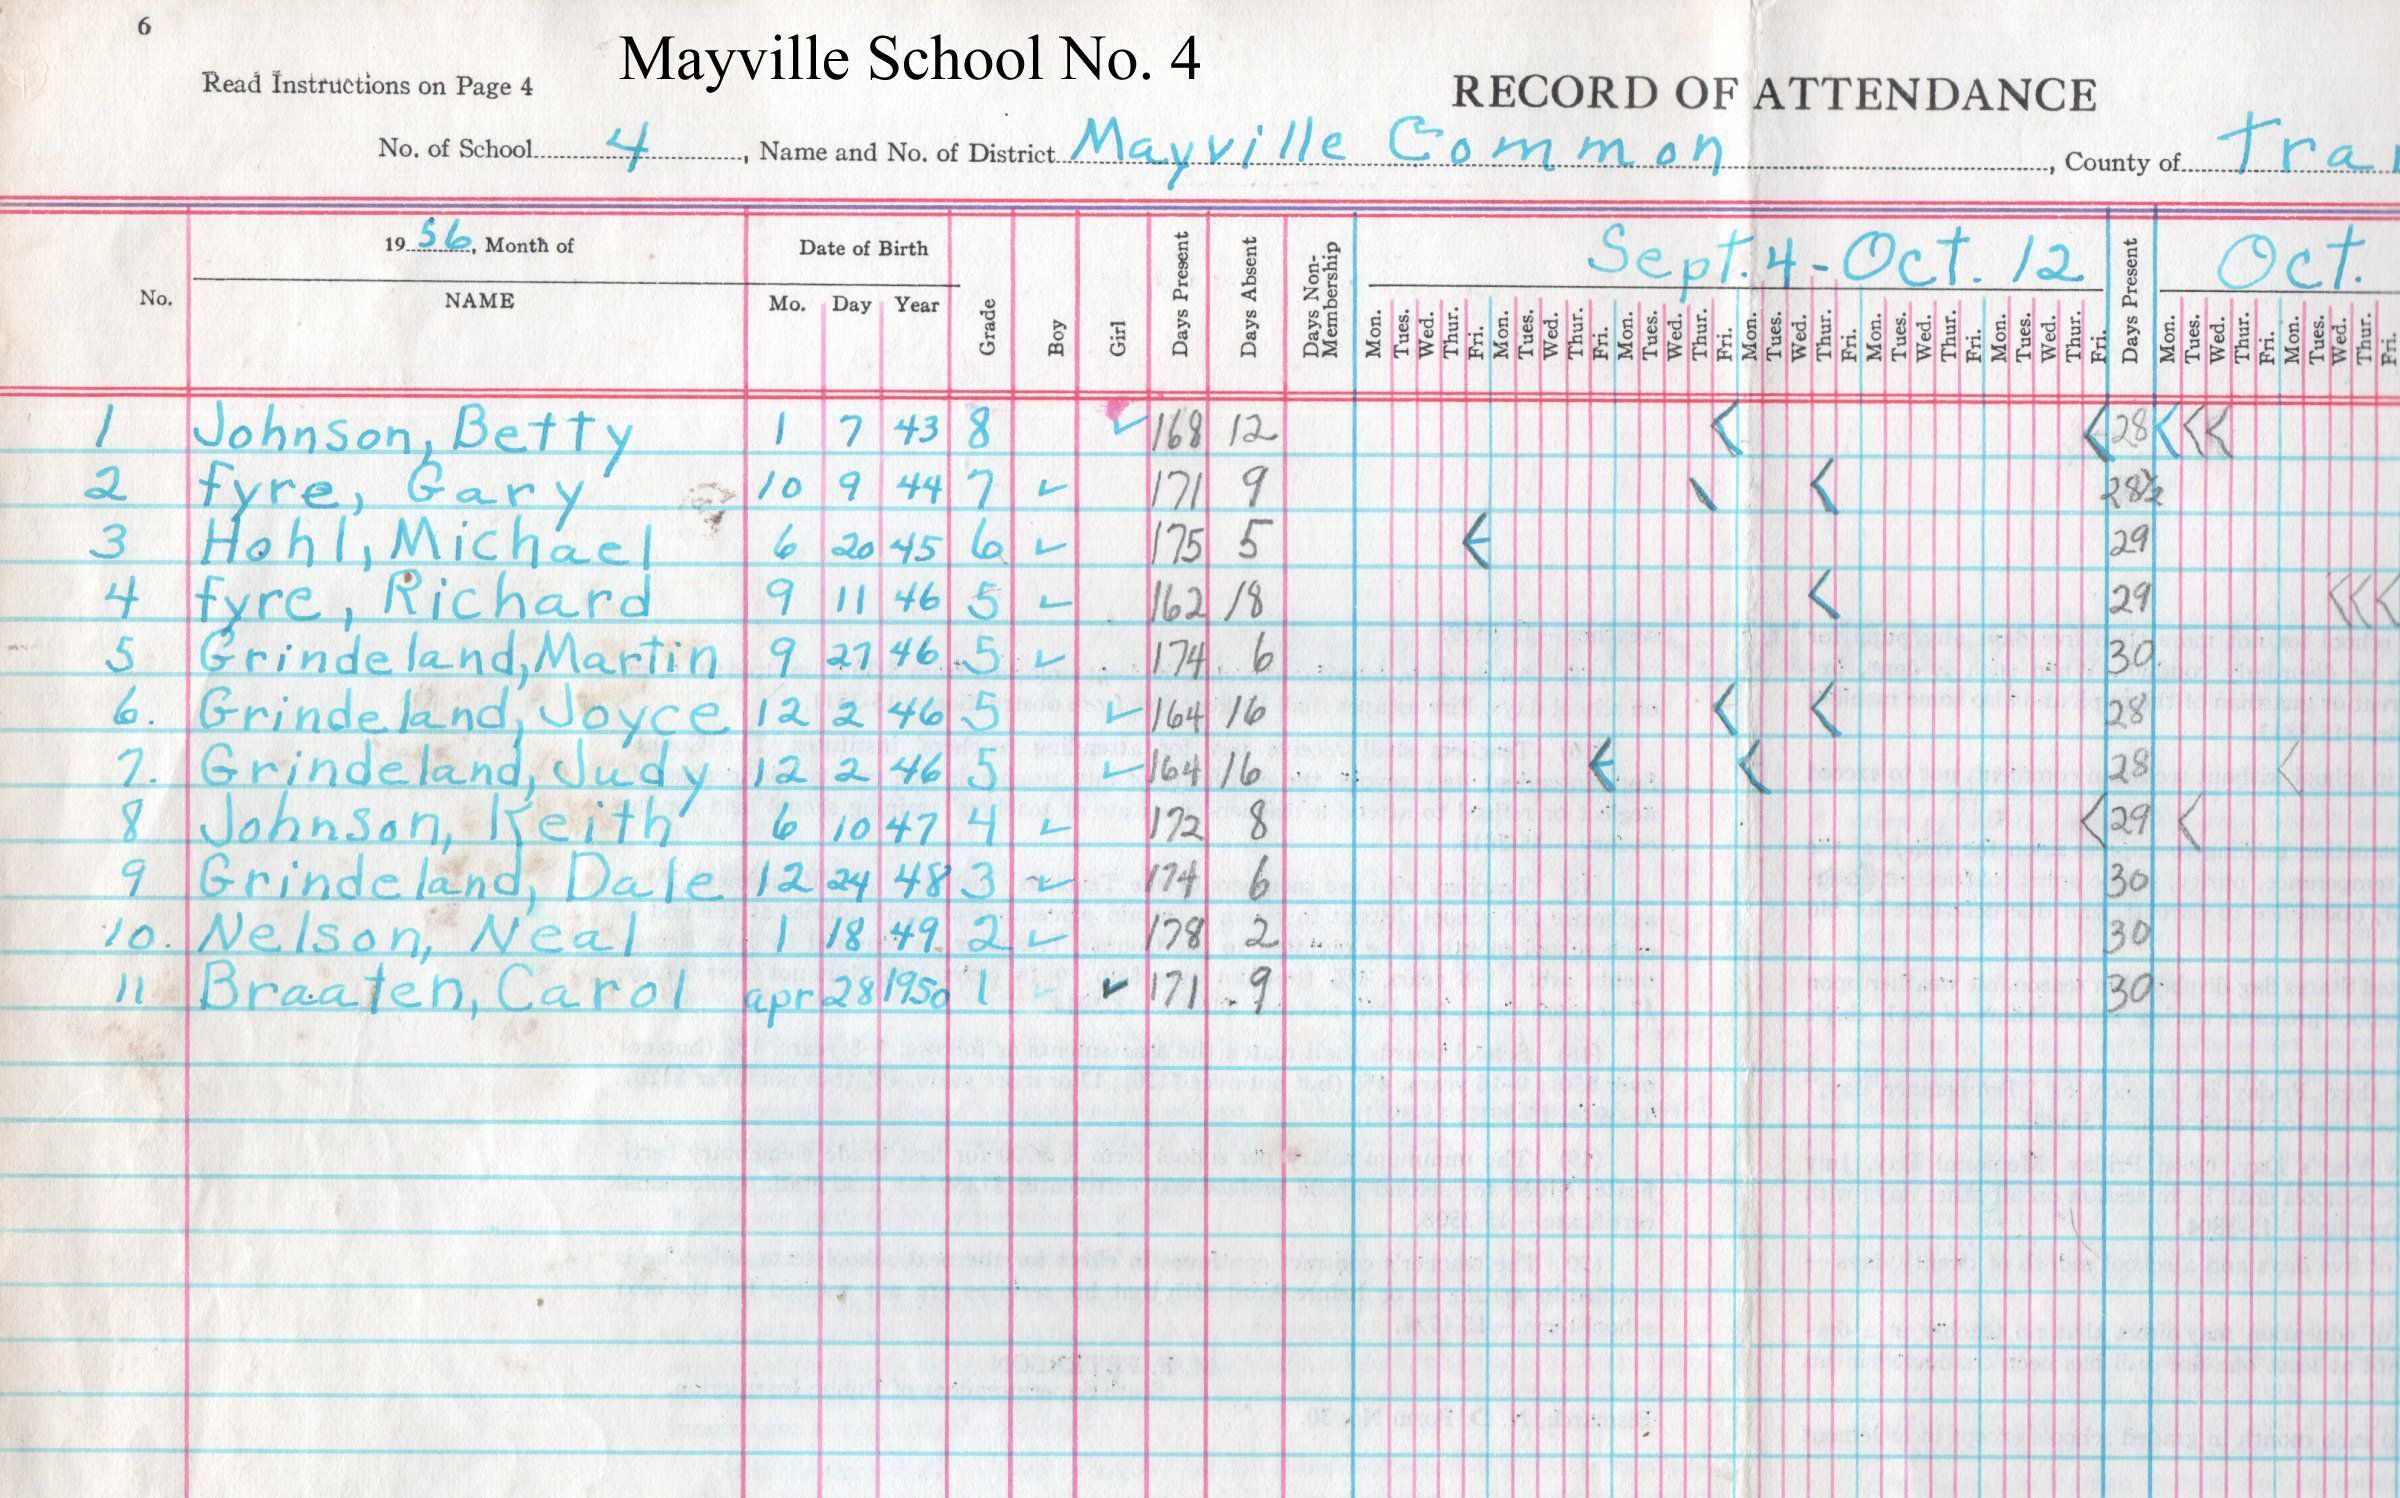 6
Mayville School No. 4
Read Instructions on Page 4
RECORD OF ATTENDANCE
No. of School 4, Name and No. of District Mayville Common, County of Tra
No. 1956, Month of NAME Date of Birth Mo. Day Year Grade Boy Girl Days Present Days Absent Days Non-Membership Sept. 4 - Oct. 12 Days Present Oct.
Mon. Tues. Wed. Thur. Fri. Mon. Tues. Wed. Thur. Fri. Mon. Tues. Wed. Thur. Fri. Mon. Tues. Wed. Thur. Fri. Mon. Tues. Wed. Thur. Fri. Mon. Tues. Wed. Thur. Fri. Mon. Tues. Wed. Thur. Fri. Mon. Tues. Wed. Thur. Fri.
1 Johnson, Betty 1 7 43 8 ✓ 168 12 28
2 fyre, Gary 10 9 44 7 ✓ 171 9 28½
3 Hohl, Michael 6 20 45 6 ✓ 175 5 29
4 fyre, Richard 9 11 46 5 ✓ 162 18 29
5 Grindeland, Martin 9 27 46 5 ✓ 174 6 30
6. Grindeland, Joyce 12 2 46 5 ✓ 164 16 28
7. Grindeland, Judy 12 2 46 5 ✓ 164 16 28
8 Johnson, Keith 6 10 47 4 ✓ 172 8 29
9 Grindeland, Dale 12 24 48 3 ✓ 174 6 30
10. Nelson, Neal 1 18 49 2 ✓ 178 2 30
11 Braaten, Carol apr 28 1950 1 ✓ 171 9 30